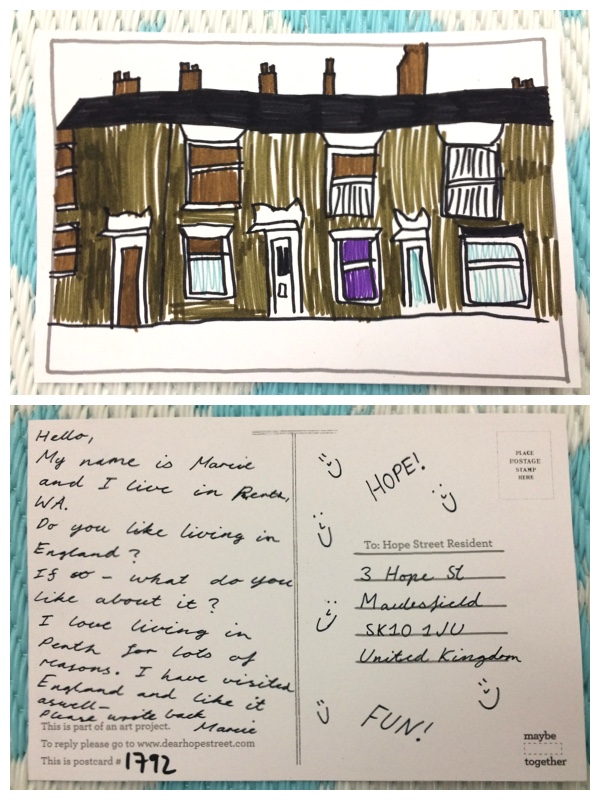 Hello,
My name is Marcie
and I live in Perth,
WA.
Do you like living in
England?
If so - what do you
like about it?
I love living in
Perth for lots of
reasons. I have visited
England and like it
aswell-
Please write back
Marcie
This is part of an art project.
To reply please go to www.dearhopestreet.com
This is postcard # 1792
HOPE!
PLACE
POSTAGE
STAMP
HERE
To: Hope Street Resident
3 Hope St
Maclesfield
SK10 1JU
United Kingdom
FUN!
maybe
together